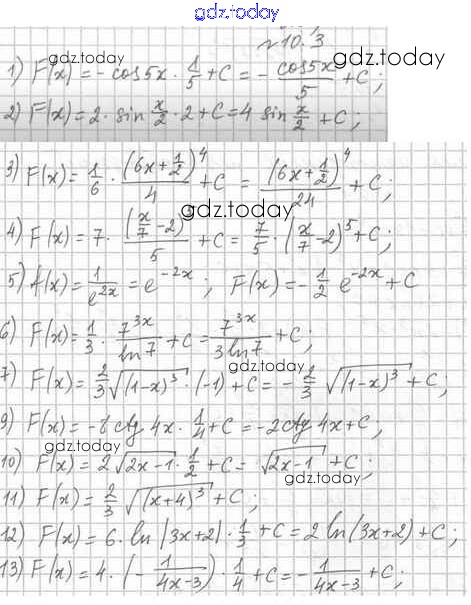 gdz.today
N10.3
gdz.today gdz.today
1) F(x) = -cos5x · 1/5 + C = - cos5x/5 + C;
2) F(x) = 2 · sin x/2 · 2 + C = 4 sin x/2 + C;
3) F(x) = 1/6 · (6x + 1/2)^4/4 + C = (6x + 1/2)^4/24 + C;
gdz.today
4) F(x) = 7 · (x/7 - 2)^5/5 + C = 7/5 · (x/7 - 2)^5 + C;
5) f(x) = 1/e^{2x} = e^{-2x}; F(x) = - 1/2 e^{-2x} + C
6) F(x) = 1/3 · 7^{3x}/ln7 + C = 7^{3x}/3ln7 + C;
gdz.today gdz.today
7) F(x) = 2/3 √(1-x)^3 · (-1) + C = - 2/3 √(1-x)^3 + C;
9) F(x) = -8 ctg 4x · 1/4 + C = -2 ctg 4x + C;
gdz.today
10) F(x) = 2 √2x-1 · 1/2 + C = √2x-1 + C;
gdz.today
11) F(x) = 2/3 √(x+4)^3 + C;
12) F(x) = 6 · ln |3x+2| · 1/3 + C = 2 ln(3x+2) + C;
gdz.today gdz.today
13) F(x) = 4 · (- 1/4x-3) · 1/4 + C = - 1/4x-3 + C;